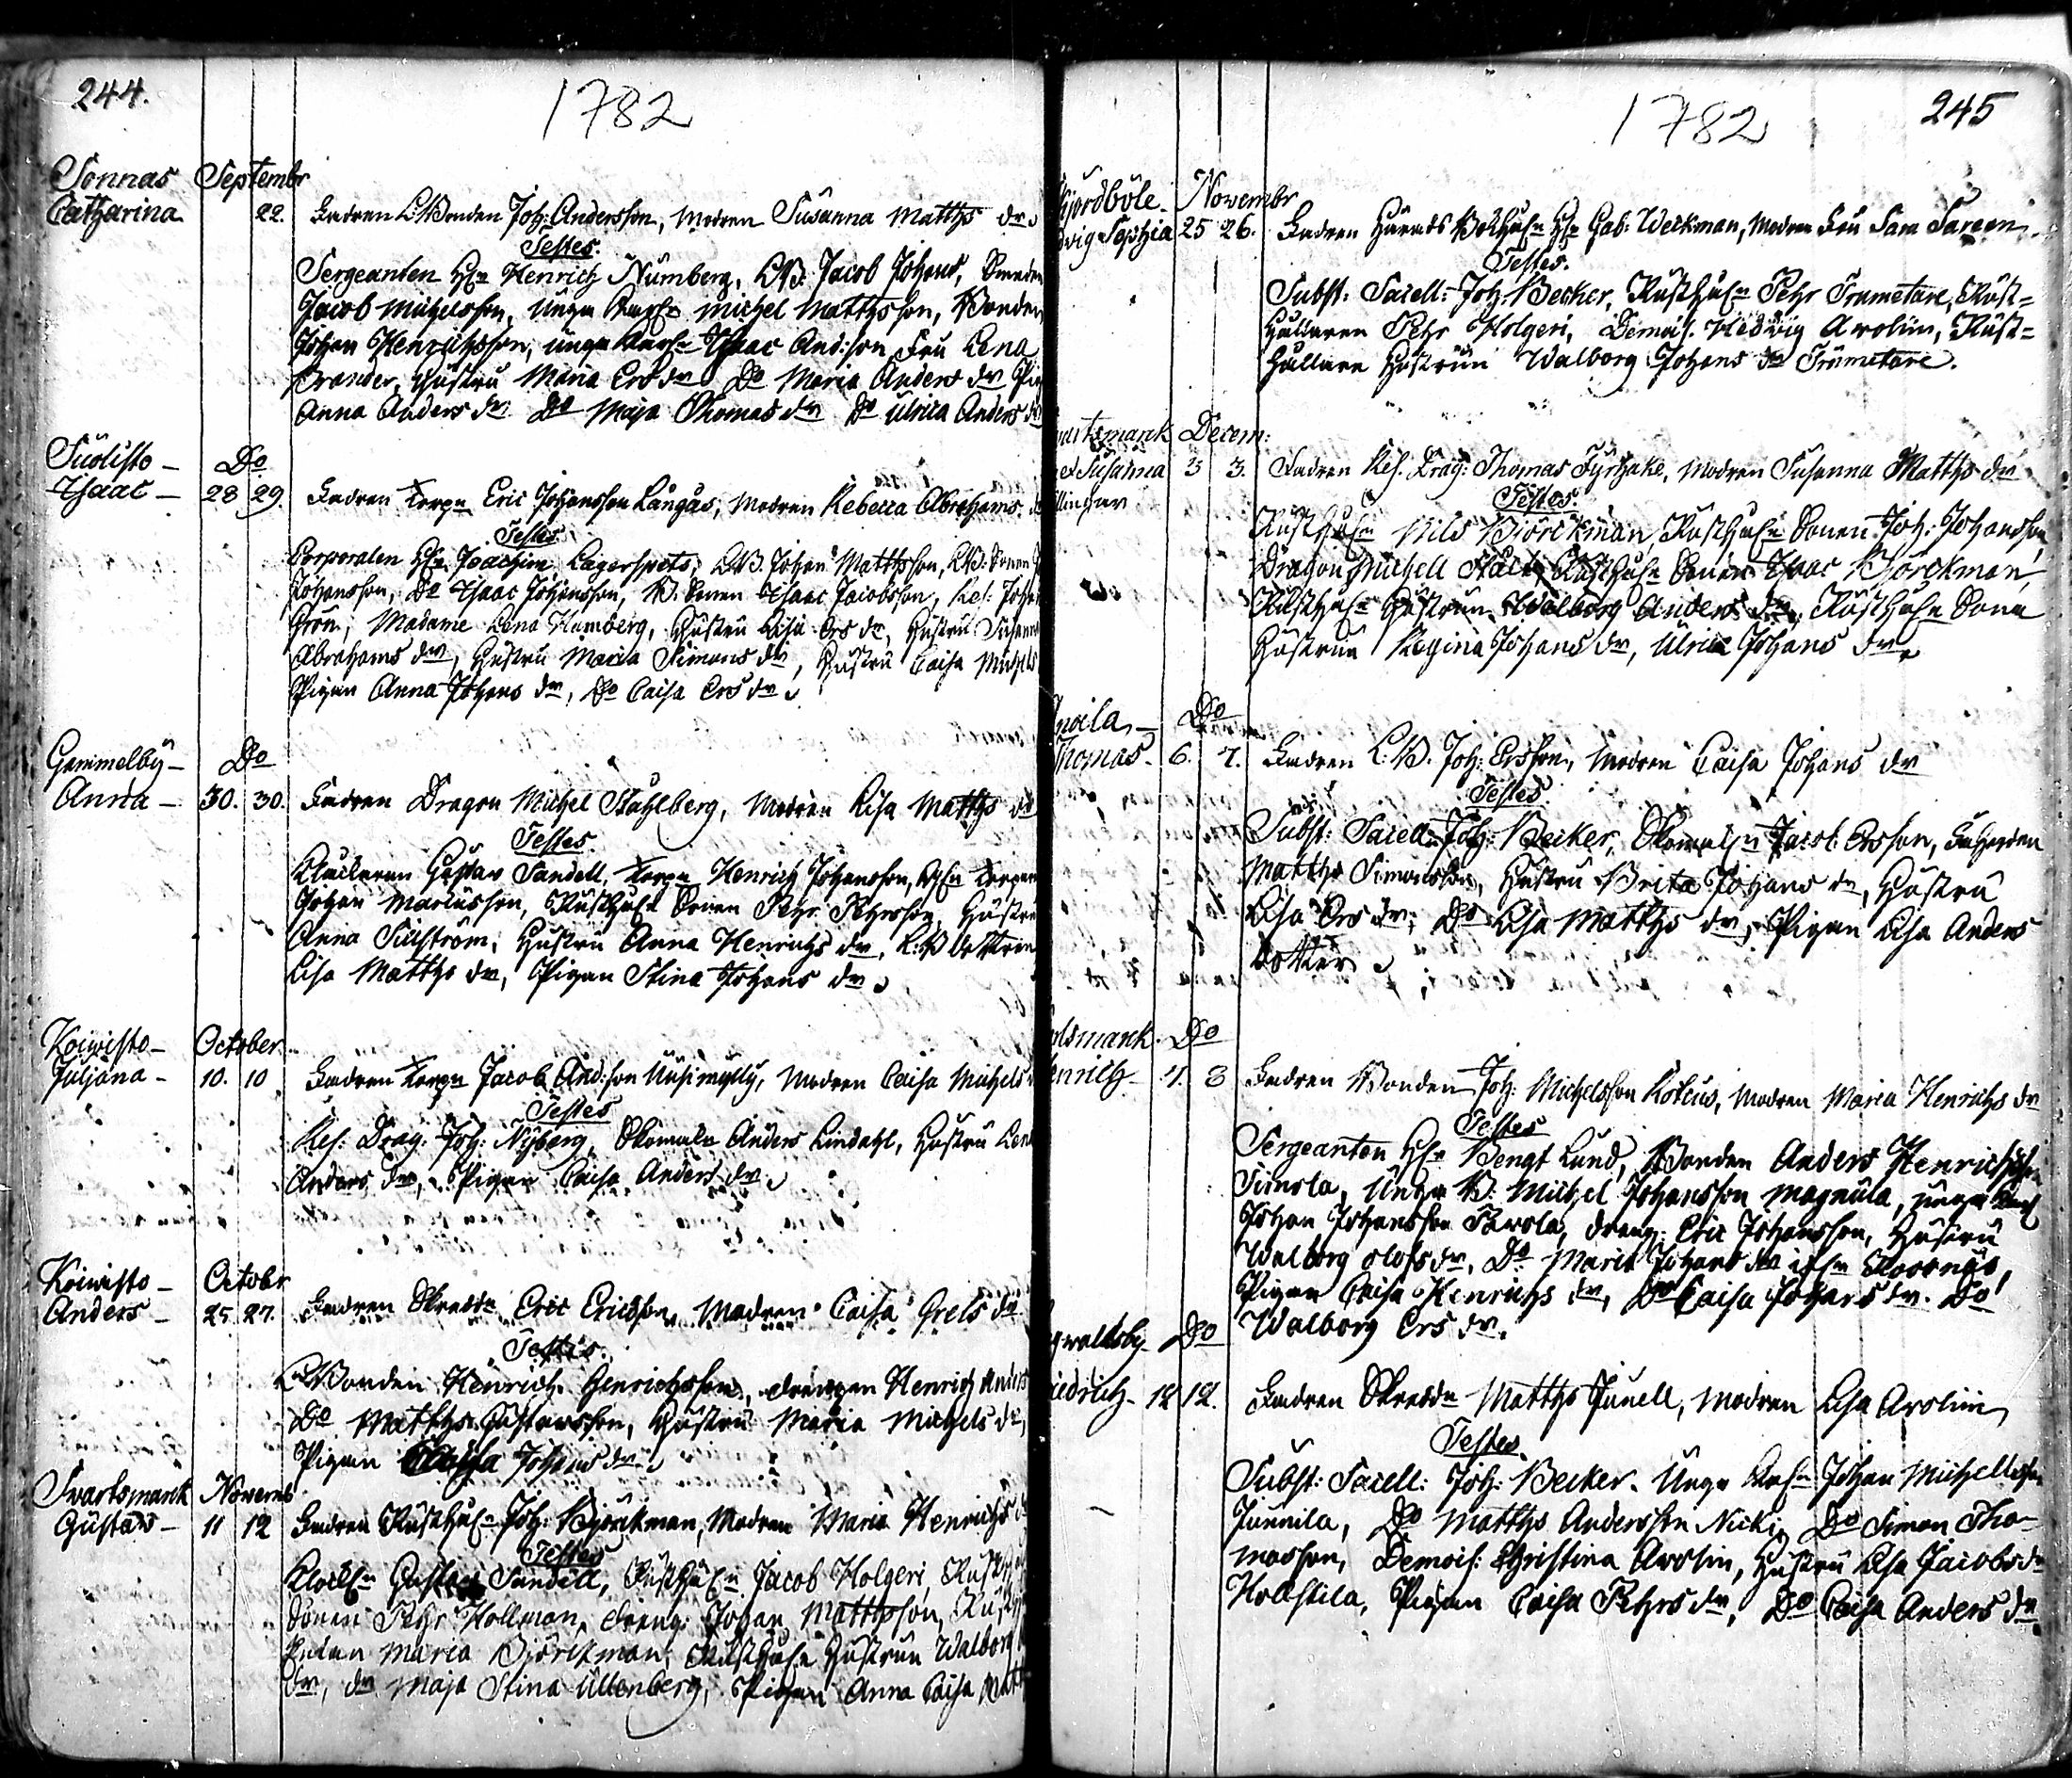 244.
1782
Sonnas Septembr
Catharina 22. Fadren LBonden Joh: Andersson, Modren Susanna Matths dr
Testes.
Sergeanten Hr Henrich Numberg, LB: Jacob Johans, Smeden
Jacob Michelsson, Unga Michel Matthsson, Bonden
Johan Henrichsson, unga Isaac And:son Fru Lena
Brander, Hustru Maria Ersdr Do Maria Anders dr
Anna Anders dr Do Maja Thomas dr Do Ulrica Anders dr
Suolisto - Do
Isaac - 28 29. Fadren Torpn Eric Johansson Långås, Modren Rebecca Abrahams
Testes
Corporalen Hr Joachim Lagerspets, LB. Johan Matthsson, LB: Sonen
Johansson, Do Isaac Johansson, B. Sonen Isaac Jacobsson, Ref: Johan
Grön, Madame Lena Humberg, Hustru Lisa Ers dr, Hustru Susanna
Abrahams dr, Hustru Maria Simons dr, Hustru Caisa Michels
Pigan Anna Johans dr, Do Caisa Ers dr
Gammelby - Do
Anna - 30. 30. Fadren Dragon Michel Ståhlberg, Modren Lisa Matths dr
Testes.
Klåckaren Gustav Sandell, Torpn Henrich Johansson,
Johan Marcusson, Rusth: Sonen Pehr Pehrsson, Hustru
Anna Sillström, Hustru Anna Henrichs dr, L:B Dottren
Lisa Matths dr, Pigan Stina Johans dr
Koiwisto - October
Juljana - 10. 10 Fadren Torpn Jacob And:son Uusimylly, Modren Caisa Michels
Testes
Ref: Drag: Joh: Nyberg, Skomakn Anders Lindahl, Hustru Lena
Anders dr, Pigan Caisa Anders dr
Koiwisto - Octobr
Anders - 25. 27. Fadren Skreddn Eric Ericsson, Modren Caisa Grels dr
Testes.
LBonden Henrich Henrichsson, drengen Henrich Anders
Do Matths Gustavsson, Hustru Maria Michels dr,
Pigan Caisa Johans dr
Svartsmarck Novemb
Gustav - 11 12 Fadren Rusth: Joh: Björckman, Modren Maria Henrichs
Testes
Klock: Gustav Sandell, Rusth: Jacob Holgeri,
Sonen Pehr Hollman, dreng: Johan Matthsson,
Maria Björckman, Rusth: Hustrun Walborg
dr, Maja Stina Ullenberg, Pigan Anna Caisa
1782
245
jordböle - Novembr
vig Sophia 25 26. Fadren Härads Hr Gab: Weckman, Modren Fru Sara Sareen
Testes.
Subst: Sacell: Joh: Becker, Rusth: Pehr Trumetare, Rust=
hållaren Pehr Holgeri, Demois: Hedvig Arolin, Rust=
hållare Hustrun Walborg Johans dr Trumetare.
artsmarck Decem:
Susanna 3 3. Fadren Ref. Drag: Thomas Fyrhake, Modren Susanna Matths dr
llingar
Testes
Rusth: Nils Björckman Rusth: Sonen Joh: Johansson,
Dragon Michell Rusth: Sonen Isaac Björckman,
Rusth: Hustrun Walborg Anders dr, Rusth: Sone
Hustrun Regina Johans dr, Ulrica Johans dr
Do
Thomas - 6. 7. Fadren L:B. Joh: Ersson, Modren Caisa Johans dr
Testes
Subst: Sacell: Joh: Becker, Jacob Ersson,
Matths Simonsson, Hustru Brita Johans dr, Hustru
Lisa Ers dr, Do Lisa Matths dr, Pigan Lisa Anders
dotter
lsmarck - Do
enrich - 7. 8 Fadren Bonden Joh: Michelsson Kokus, Modren Maria Henrichs dr
Testes
Sergeanten Hr Bengt Lund, Bonden Anders Henrichsson
Simola, Unga B. Michel Johansson Magnula, unga
Johan Johansson Parola, dreng: Eric Johansson, Hustru
Walborg Olofs dr, Do Maria Johans dr
Pigan Caisa Henrichs dr, Do Caisa Johans dr. Do
Walborg Ers dr.
gwaldsby - Do
iedrich - 12 12. Fadren Skreddn Matths Junell, Modren Lisa Arolin
Testes
Subst: Sacell: Joh: Becker. Unga Johan Michellsson
Junnila, Do Matths Andersson Nicki, Do Simon Tho-
masson, Demois: Christina Arolin, Hustru Lisa Jacobs dr
Hollstila, Pigan Caisa Pehrs dr, Do Caisa Anders dr.